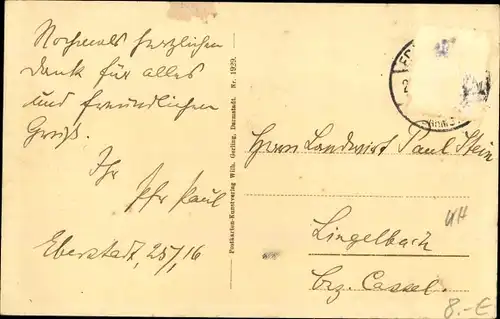 Nochmals herzlichen
Dank für alles
und freundlichen
Gruß.
Ihr
Pfr Paul
Eberstadt, 25/ 16
Postkarten-Kunstverlag Wilh. Gerling, Darmstadt. Nr. 1929.
Herrn Landwirt Paul Stein
Lingelbach
Bez. Cassel.
8.-€